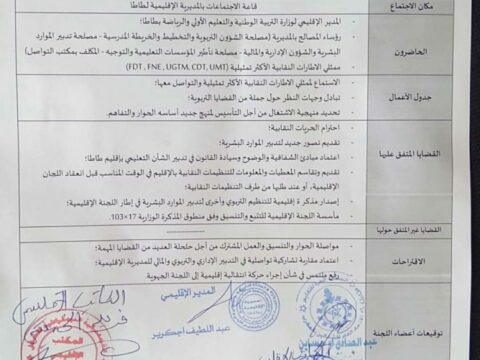 مكان الاجتماع
قاعة الاجتماعات بالمديرية الإقليمية لطاطا
الحاضرون
- المدير الإقليمي لوزارة التربية الوطنية والتعليم الأولي والرياضة بطاطا؛
- رؤساء المصالح بالمديرية (مصلحة الشؤون التربوية والتخطيط والخريطة المدرسية - مصلحة تدبير الموارد
البشرية والشؤون الإدارية والمالية - مصلحة تأطير المؤسسات التعليمية والتوجيه - المكلف بمكتب التواصل)
- ممثلي الإطارات النقابية الأكثر تمثيلية (FDT, FNE, UGTM, CDT, UMT)
جدول الأعمال
- الاستماع لممثلي الاطارات النقابية الأكثر تمثيلية والتواصل معها؛
- تبادل وجهات النظر حول جملة من القضايا التربوية؛
- تحديد منهجية الاشتغال من أجل التأسيس لمنهج جديد أساسه الحوار والتفاهم.
القضايا المتفق عليها
- احترام الحريات النقابية؛
- تقديم تصور جديد لتدبير الموارد البشرية؛
- اعتماد مبادئ الشفافية والوضوح وسيادة القانون في تدبير الشأن التعليمي بإقليم طاطا؛
- تقديم وتقاسم المعطيات والمعلومات للتنظيمات النقابية بالإقليم في الوقت المناسب قبل انعقاد اللجان
الإقليمية، أو عند طلبها من طرف التنظيمات النقابية؛
- إصدار مذكرة إقليمية للتنظيم التربوي وأخرى لتدبير الموارد البشرية في إطار اللجنة الإقليمية؛
- مأسسة اللجنة الإقليمية للتتبع والتنسيق وفق منطوق المذكرة الوزارية 17×103
القضايا غير المتفق حولها
الاقتراحات
- مواصلة الحوار والتنسيق والعمل المشترك من أجل حلحلة العديد من القضايا المهمة؛
- اعتماد مقاربة تشاركية تواصلية في التدبير الإداري والتربوي والمالي للمديرية الإقليمية؛
- رفع ملتمس في شأن إجراء حركة انتقالية إقليمية إلى اللجنة الجهوية
توقيعات أعضاء اللجنة
المدير الإقليمي
عبد اللطيف اجكرير